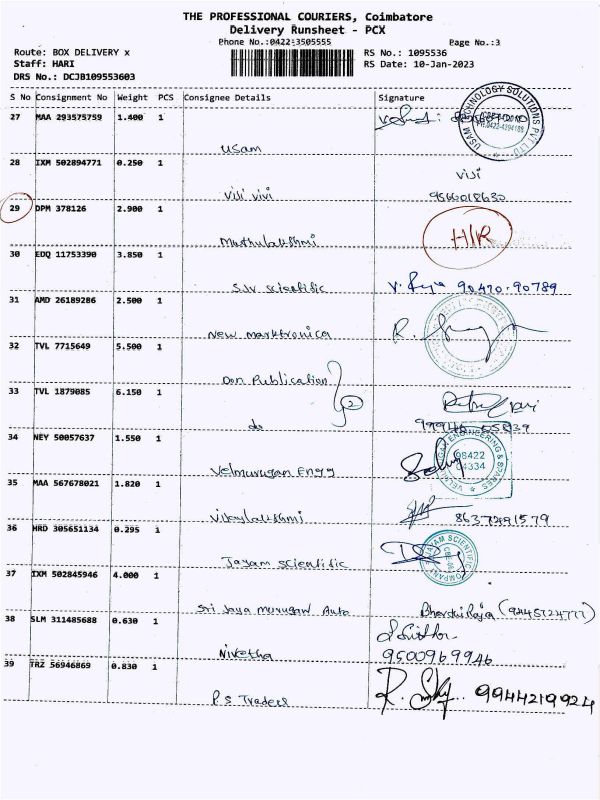 THE PROFESSIONAL COURIERS, Coimbatore
Delivery Runsheet - PCX
Phone No.:0422-3505555 Page No.:3
Route: BOX DELIVERY x RS No.: 1095536
Staff: HARI RS Date: 10-Jan-2023
DRS No.: DCJB109553603
S No Consignment No Weight PCS Consignee Details Signature
27 MAA 293575759 1.400 1
USAM TECHNOLOGY SOLUTIONS PVT LTD
Usam
28 IXM 502894771 0.250 1 Viji
Viji vivi 9566018630
29 DPM 378126 2.900 1 HIR
Muthulakshmi
30 EDQ 11753390 3.850 1
S.V. scientific V. 90470.90789
31 AMD 26189286 2.500 1
New marktronica R.
32 TVL 7715649 5.500 1
Don Publication 2
33 TVL 1879085 6.150 1
do 05839
34 NEY 50057637 1.550 1 ENGINEERING & SPARES
98422
Velmurugan Engg 04334
35 MAA 567678021 1.820 1
Vijaylakshmi 8637291579
36 HRD 305651134 0.295 1 JAYAM SCIENTIFIC COMPANY
Jayam scientific
37 IXM 502845946 4.000 1
Sri Jaya murugan Auto Bharathi Raja
38 SLM 311485688 0.630 1
Nivetha 9500969946
39 TRZ 56946869 0.830 1 R. 9944219924
P.S Traders